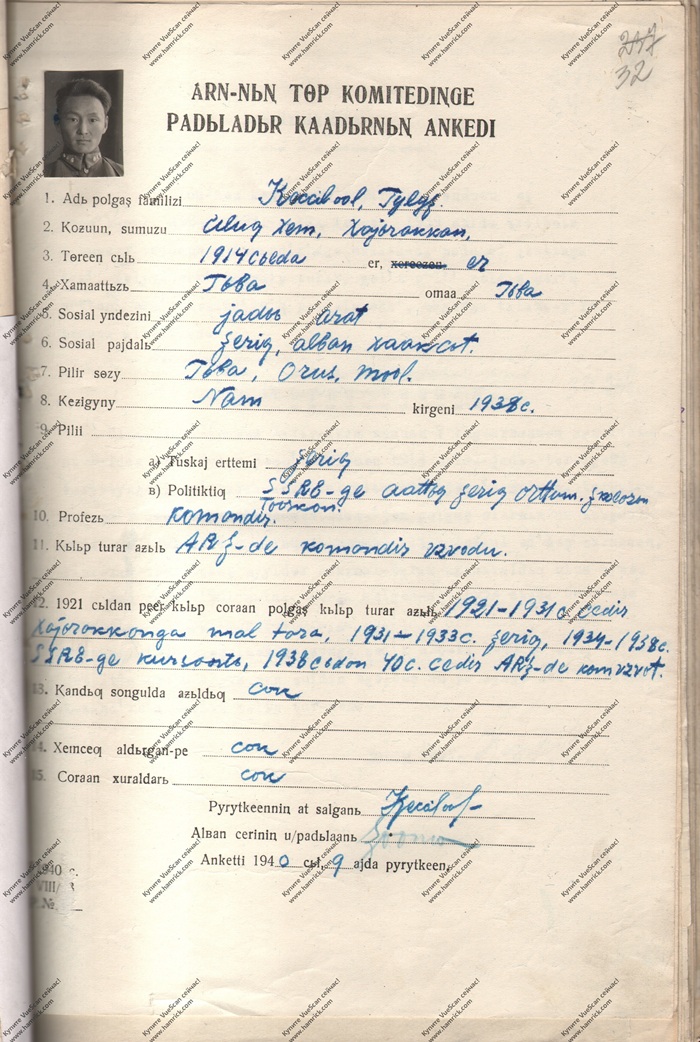 247
32
ARN-NЬN TӨP KOMITEDINGE
PADЬLADЬR KAADЬRNЬN ANKEDI
1. Adь polgaş familizi Kɵcilool, Tylgş.
2. Kozuun, sumuzu Uluq Xem, Xajьrakkan,
3. Tɵreen cьlь 1914 cьlda er, xereezen er
4. Xamaattьzь Tьва omaa Tьва
5. Sosial yndezini jadьь arat
6. Sosial pajdalь şerig, alban xaakcьt.
7. Pilir sɵzy Tьва, Orus, Mool.
8. Kezigyny Nam kirgeni 1938 c.
9. Pilii
a) Tuskaj erttemi şerig
в) Politiktiq SSRE-ge aattьg şerig orttum. şkolazьn
tooskan.
10. Profezь Komandir.
11. Kьlьp turar azьlь ARŞ-de komandir vzvodu.
12. 1921 cьldan peer kьlьp coraan polgaş kьlьp turar azьlь 1921-1931 c. cedir
Xajьrakkanga mal tara, 1931-1933 c. şerig, 1934-1938 c.
SSRE-ge kursantь, 1938 cьldan 40 c. cedir ARŞ-de komvzvot.
13. Kandьq songulda azьldьq cok
14. Xemceq aldьrgan-pe cok
15. Coraan xuraldarь cok
Pyrytkeennin at salganь
Alban cerinin u/padьlaanь
Anketti 1940 cьl, 9 ajda pyrytkeen.
940 c.
VIII/ 3
P.№.
Купите VueScan сейчас!
www.hamrick.com